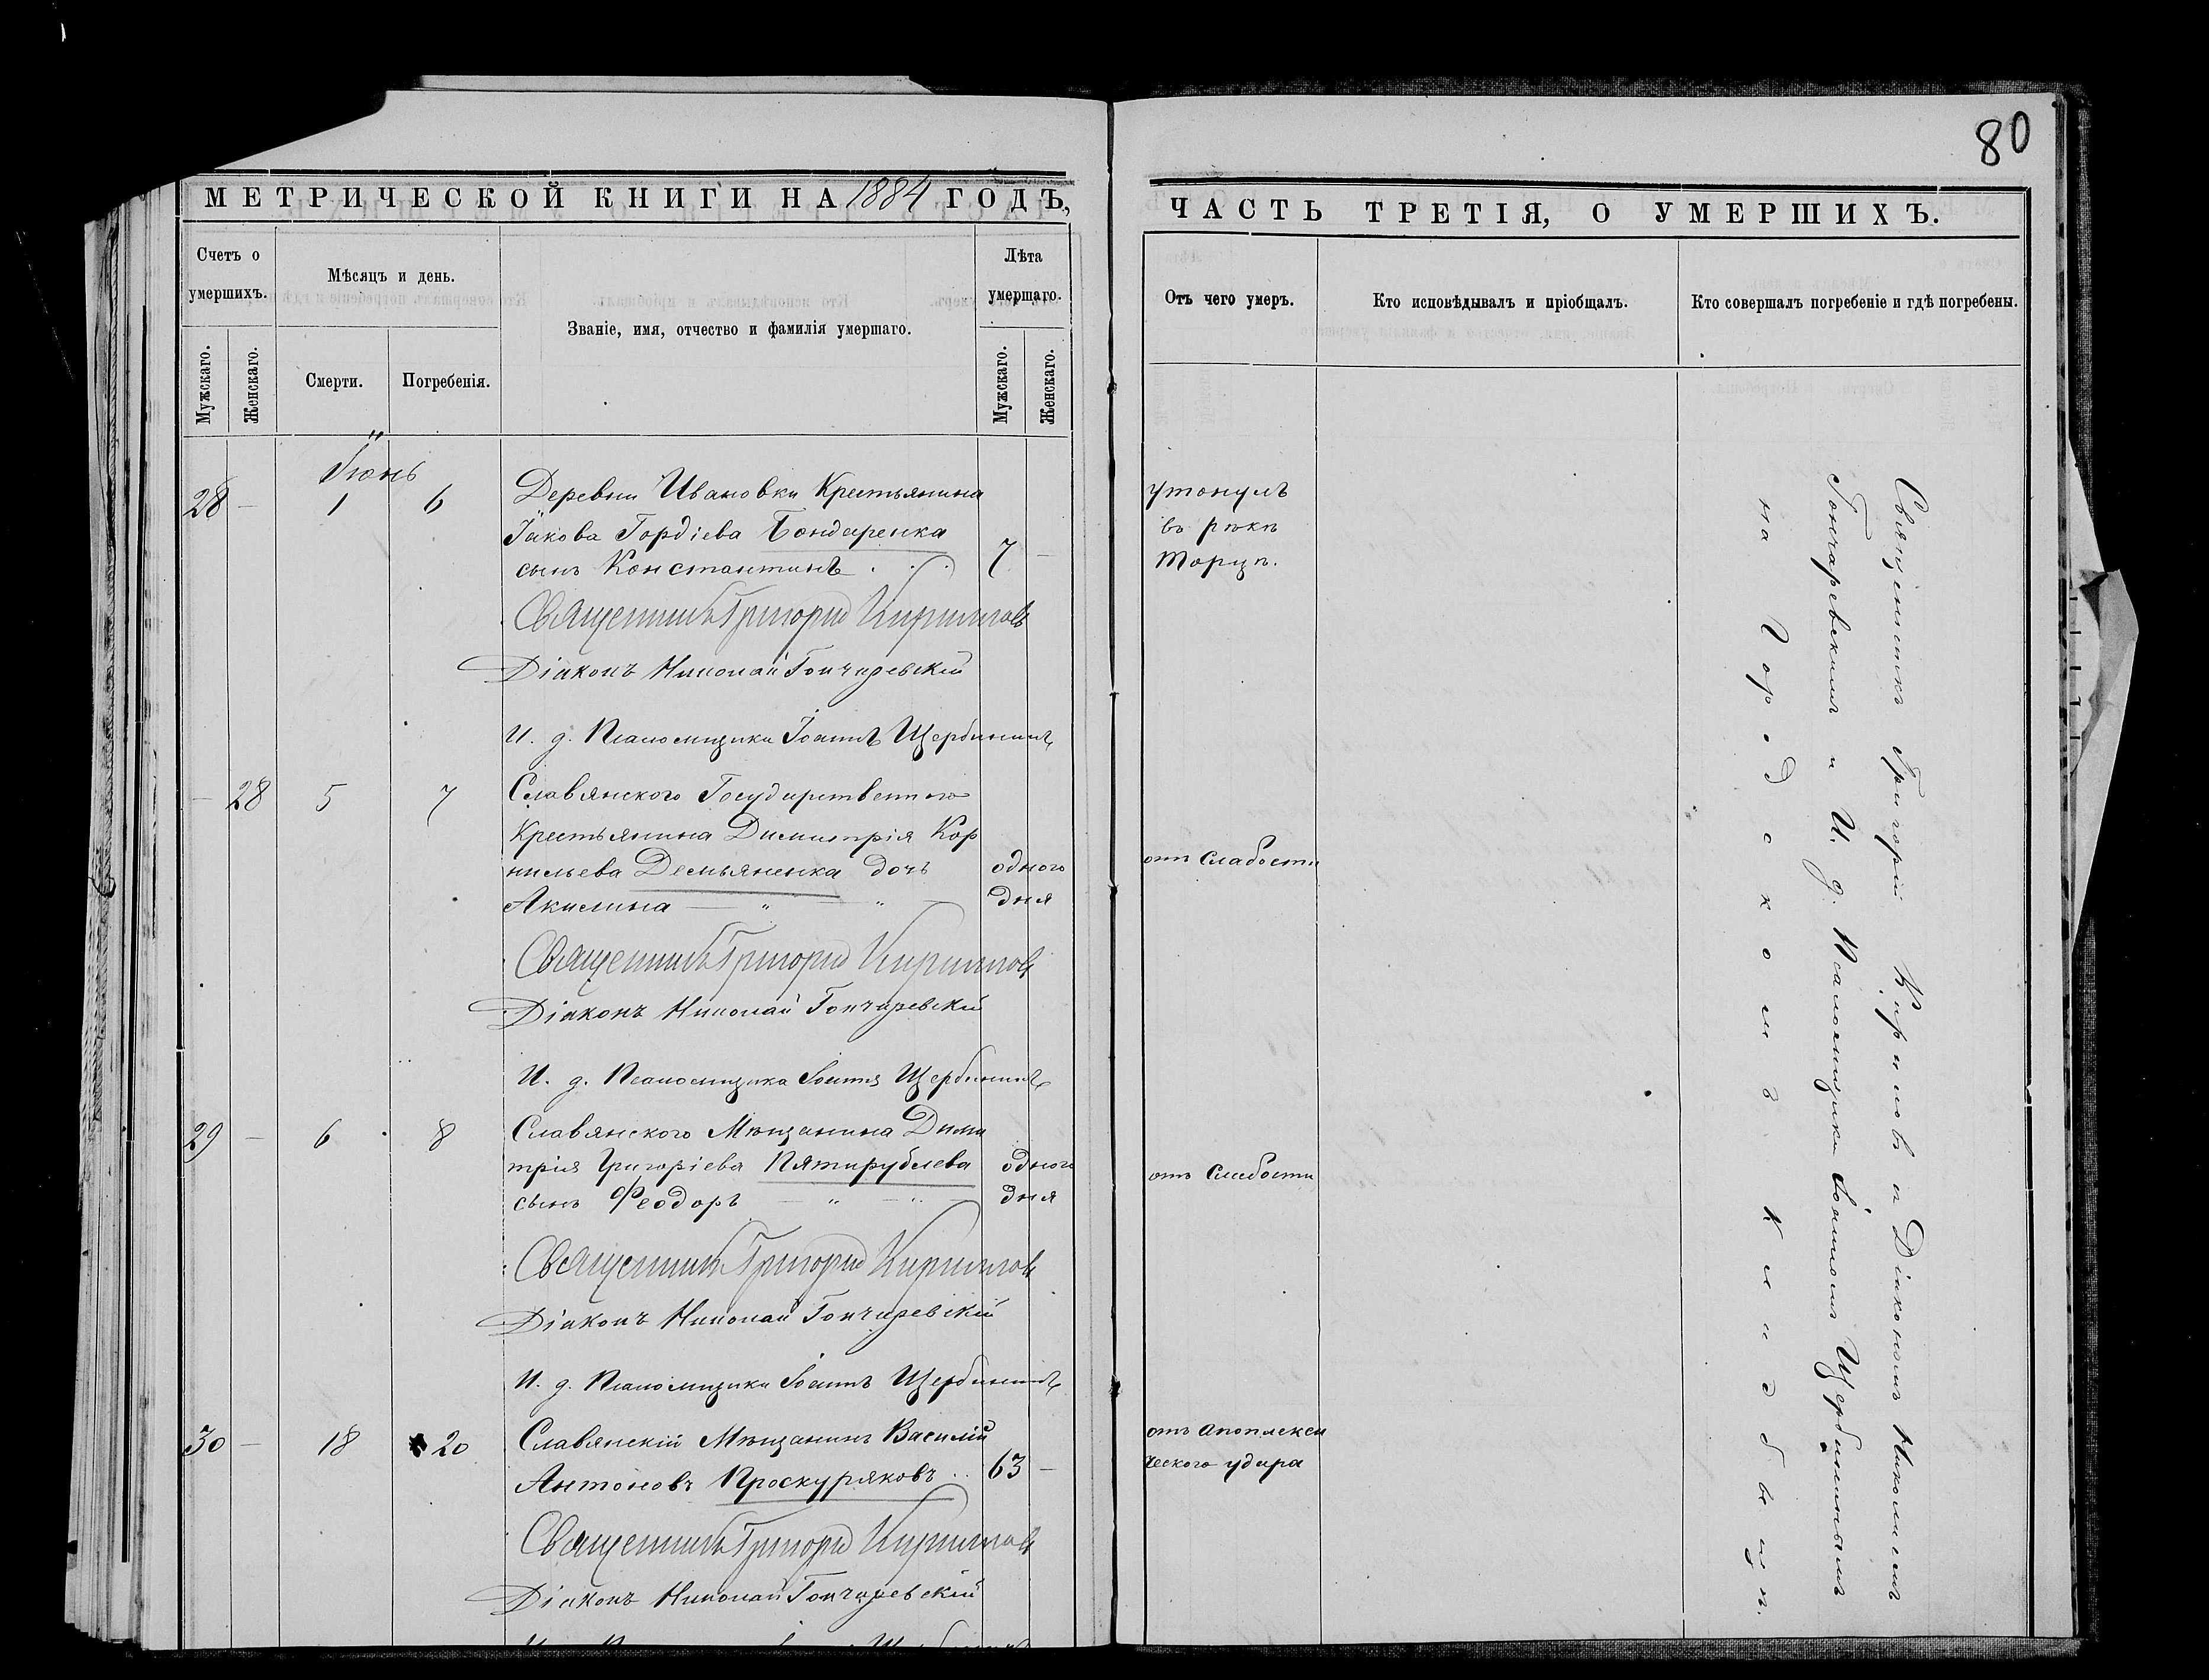 80
МЕТРИЧЕСКОЙ КНИГИ НА 1884 ГОДЪ,
Счетъ о умершихъ.
Мужскаго.
Женскаго.
Мѣсяцъ и день.
Смерти.
Погребенія.
Званіе, имя, отчество и фамилія умершаго.
Лѣта умершаго.
Мужскаго.
Женскаго.
Іюнь
28 — 1 6 Деревни Ивановки Крестьянина
Іакова Гордіева Бондаренка
сынъ Константинъ . . . 7 —
Священникъ Григорій Кириловъ
Діаконъ Николай Гончаревскій
И. д. Псаломщика Іоаннъ Щербининъ
— 28 5 7 Славянского Государственного
Крестьянина Димитрія Кор
нильева Демьяненка дочь одного
Акилина — " " — дня
Священникъ Григорій Кириловъ
Діаконъ Николай Гончаревскій
И. д. Псаломщика Іоаннъ Щербининъ
29 — 6 8 Славянского Мѣщанина Дими
трія Григоріева Пятирублева одного
сынъ Феодоръ — " — " — дня
Священникъ Григорій Кириловъ
Діаконъ Николай Гончаревскій
И. д. Псаломщика Іоаннъ Щербининъ
30 — 18 20 Славянскій Мѣщанинъ Василій
Антоновъ Проскуряковъ . . 63 —
Священникъ Григорій Кириловъ
Діаконъ Николай Гончаревскій
ЧАСТЬ ТРЕТІЯ, О УМЕРШИХЪ.
Отъ чего умеръ.
Кто исповѣдывалъ и пріобщалъ.
Кто совершалъ погребеніе и гдѣ погребены.
утонулъ
въ рѣкѣ
Торцѣ.
отъ слабости
отъ слабости
отъ апоплекси
ческого удара
Священникъ Григорій Кириловъ и Діакономъ Николаемъ
Гончаревскимъ и И. д. Псаломщика Іоанномъ Щербининымъ
на Городскомъ Кладбищѣ.